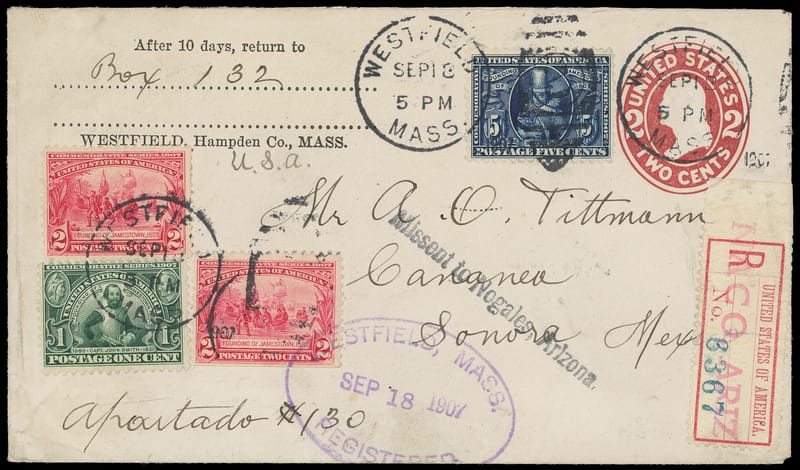 After 10 days, return to
Box 132
WESTFIELD, Hampden Co., MASS.
U.S.a.
WESTFIELD
SEP 18
5 PM
MASS.
UNITED STATES OF AMERICA
FOUNDING OF JAMESTOWN 1607
5 5
POSTAGE FIVE CENTS
WESTFIELD
SEP 18
5 PM
MASS.
1907
UNITED STATES
2 2
TWO CENTS
COMMEMORATIVE SERIES 1907
UNITED STATES OF AMERICA
FOUNDING OF JAMESTOWN, 1607
2 2
POSTAGE TWO CENTS
WESTFIELD
SEP 1
MASS.
COMMEMORATIVE SERIES 1907
UNITED STATES OF AMERICA
1 1
1580 · CAPT. JOHN SMITH · 1631
POSTAGE ONE CENT
COMMEMORATIVE SERIES 1907
UNITED STATES OF AMERICA
FOUNDING OF JAMESTOWN, 1607
2 2
POSTAGE TWO CENTS
1907
Mr A. O. Tittmann
Cananea
Sonora Mex
Missent to Nogales, Arizona.
WESTFIELD, MASS.
SEP 18 1907
REGISTERED
Apartado #130
UNITED STATES OF AMERICA.
R
No. 8367
ARIZ